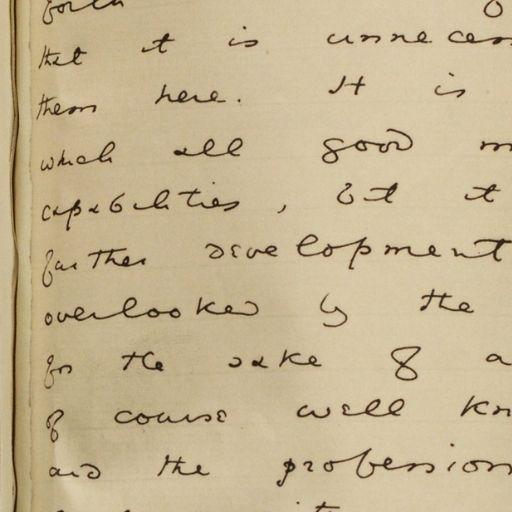 forth
that it is unnecess
them here. It is
which all good m
capabilities, but it
further development
overlooked by the
for the sake of a
of course well kn
and the profession